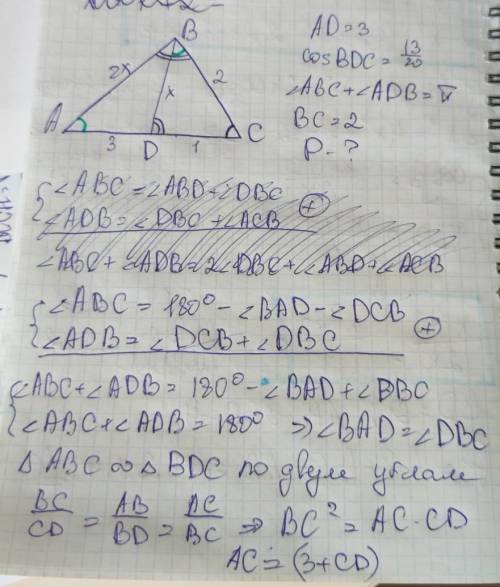 B
2x
x
2
A
3
D
1
C
AD=3
cosBDC=13/20
∠ABC+∠ADB=π
BC=2
P-?
{∠ABC=∠ABD+∠DBC
∠ADB=∠DBC+∠ACB ⊕
∠ABC+∠ADB=2∠DBC+∠ABD+∠ACB
{∠ABC=180°-∠BAD-∠DCB
∠ADB=∠DCB+∠DBC ⊕
{∠ABC+∠ADB=180°-∠BAD+∠DBC
∠ABC+∠ADB=180° ⇒∠BAD=∠DBC
△ABC∞△BDC по двум углам
BC/CD=AB/BD=AC/BC ⇒ BC²=AC·CD
AC=(3+CD)